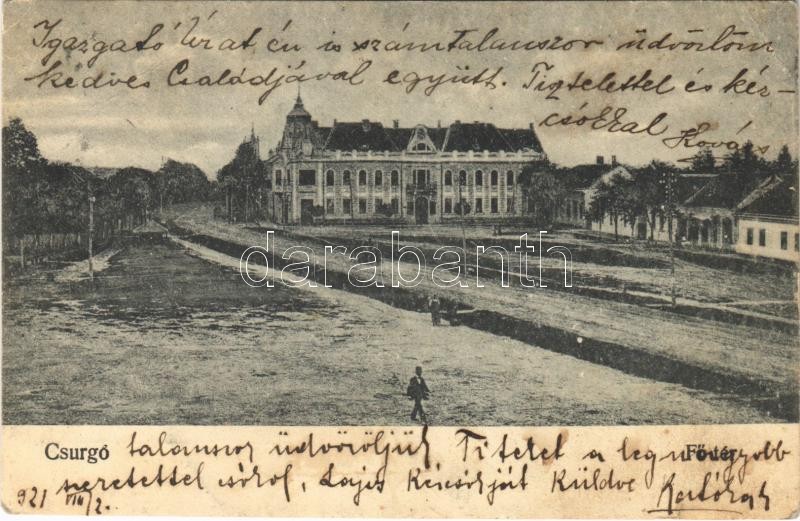 Igazgató Urat én is számtalanszor üdvözlöm
kedves Családjával együtt. Tisztelettel és kéz-
csókkal Kovács
darabanth
Csurgó
Főtér
talanszor üdvözöljük Titeket a legnagyobb
szeretettel csókol, Lajos
küldve
921 VIII/2.